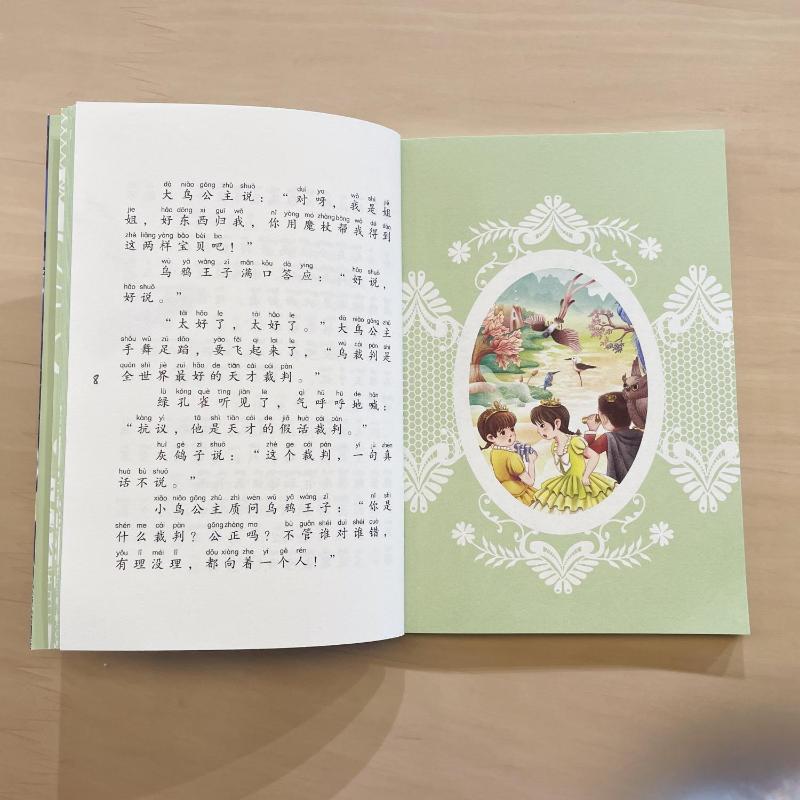 dà niǎo gōng zhǔ shuō duì ya wǒ shì jiě
大鸟公主说：“对呀，我是姐
jie hǎo dōng xi guī wǒ nǐ yòng mó zhàng bāng wǒ dé dào
姐，好东西归我，你用魔杖帮我得到
zhè liǎng yàng bǎo bèi ba
这两样宝贝吧！”
wū yā wáng zǐ mǎn kǒu dā ying hǎo shuō
乌鸦王子满口答应：“好说，
hǎo shuō
好说。”
tài hǎo le tài hǎo le dà niǎo gōng zhǔ
“太好了，太好了。”大鸟公主
shǒu wǔ zú dǎo yào fēi qǐ lái le wū cái pàn shì
手舞足蹈，要飞起来了，“乌裁判是
quán shì jiè zuì hǎo de tiān cái cái pàn
全世界最好的天才裁判。”
lǜ kǒng què tīng jiàn le qì hū hū de hǎn
绿孔雀听见了，气呼呼地喊：
kàng yì tā shì tiān cái de jiǎ huà cái pàn
“抗议，他是天才的假话裁判。”
huī gē zi shuō zhè ge cái pàn yí jù zhēn
灰鸽子说：“这个裁判，一句真
huà bù shuō
话不说。”
xiǎo niǎo gōng zhǔ zhì wèn wū yā wáng zǐ nǐ shì
小鸟公主质问乌鸦王子：“你是
shén me cái pàn gōng zhèng ma bù guǎn shéi duì shéi cuò
什么裁判？公正吗？不管谁对谁错，
yǒu lǐ méi lǐ dōu xiàng zhe yí gè rén
有理没理，都向着一个人！”
8